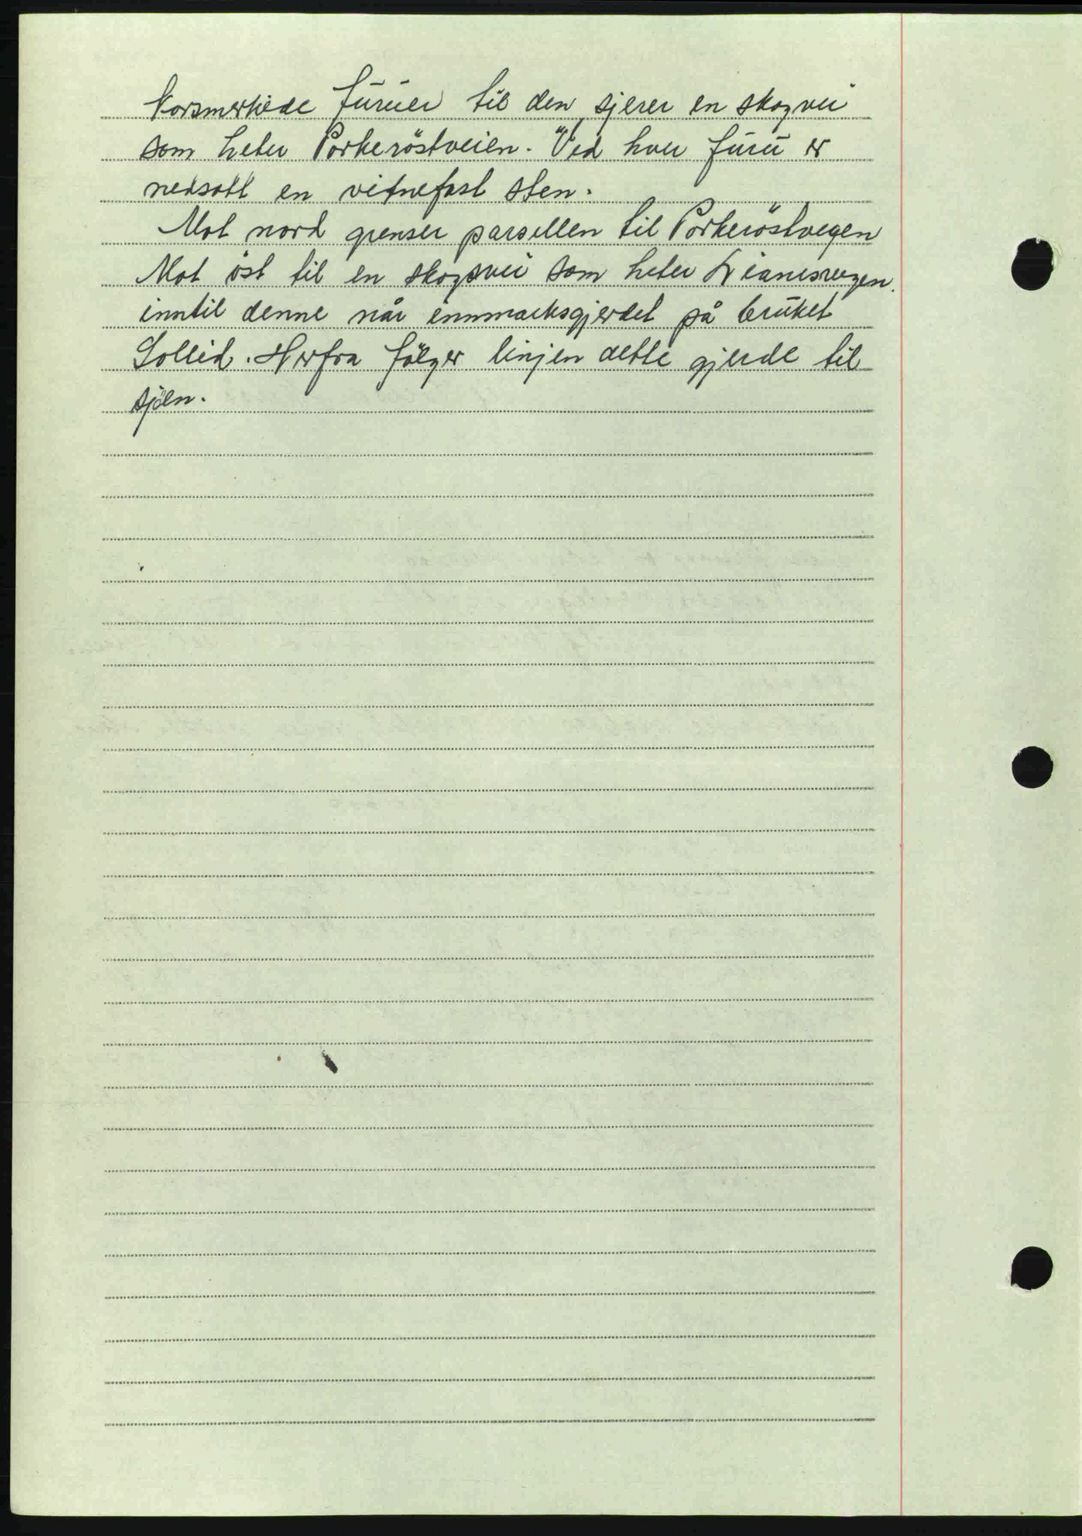 korsmerkede furuer til den sjerer en skogvei
som heter Porkeröstveien. Ved hver furu er
nedsatt en vitnefast sten.
Mot nord grenser parsellen til Porkeröstvegen
Mot öst til en skogsvei som heter
inntil denne når innmarksgjerdet på bruket
Sollid. Herfra fölger linjen dette gjerde til
sjöen.